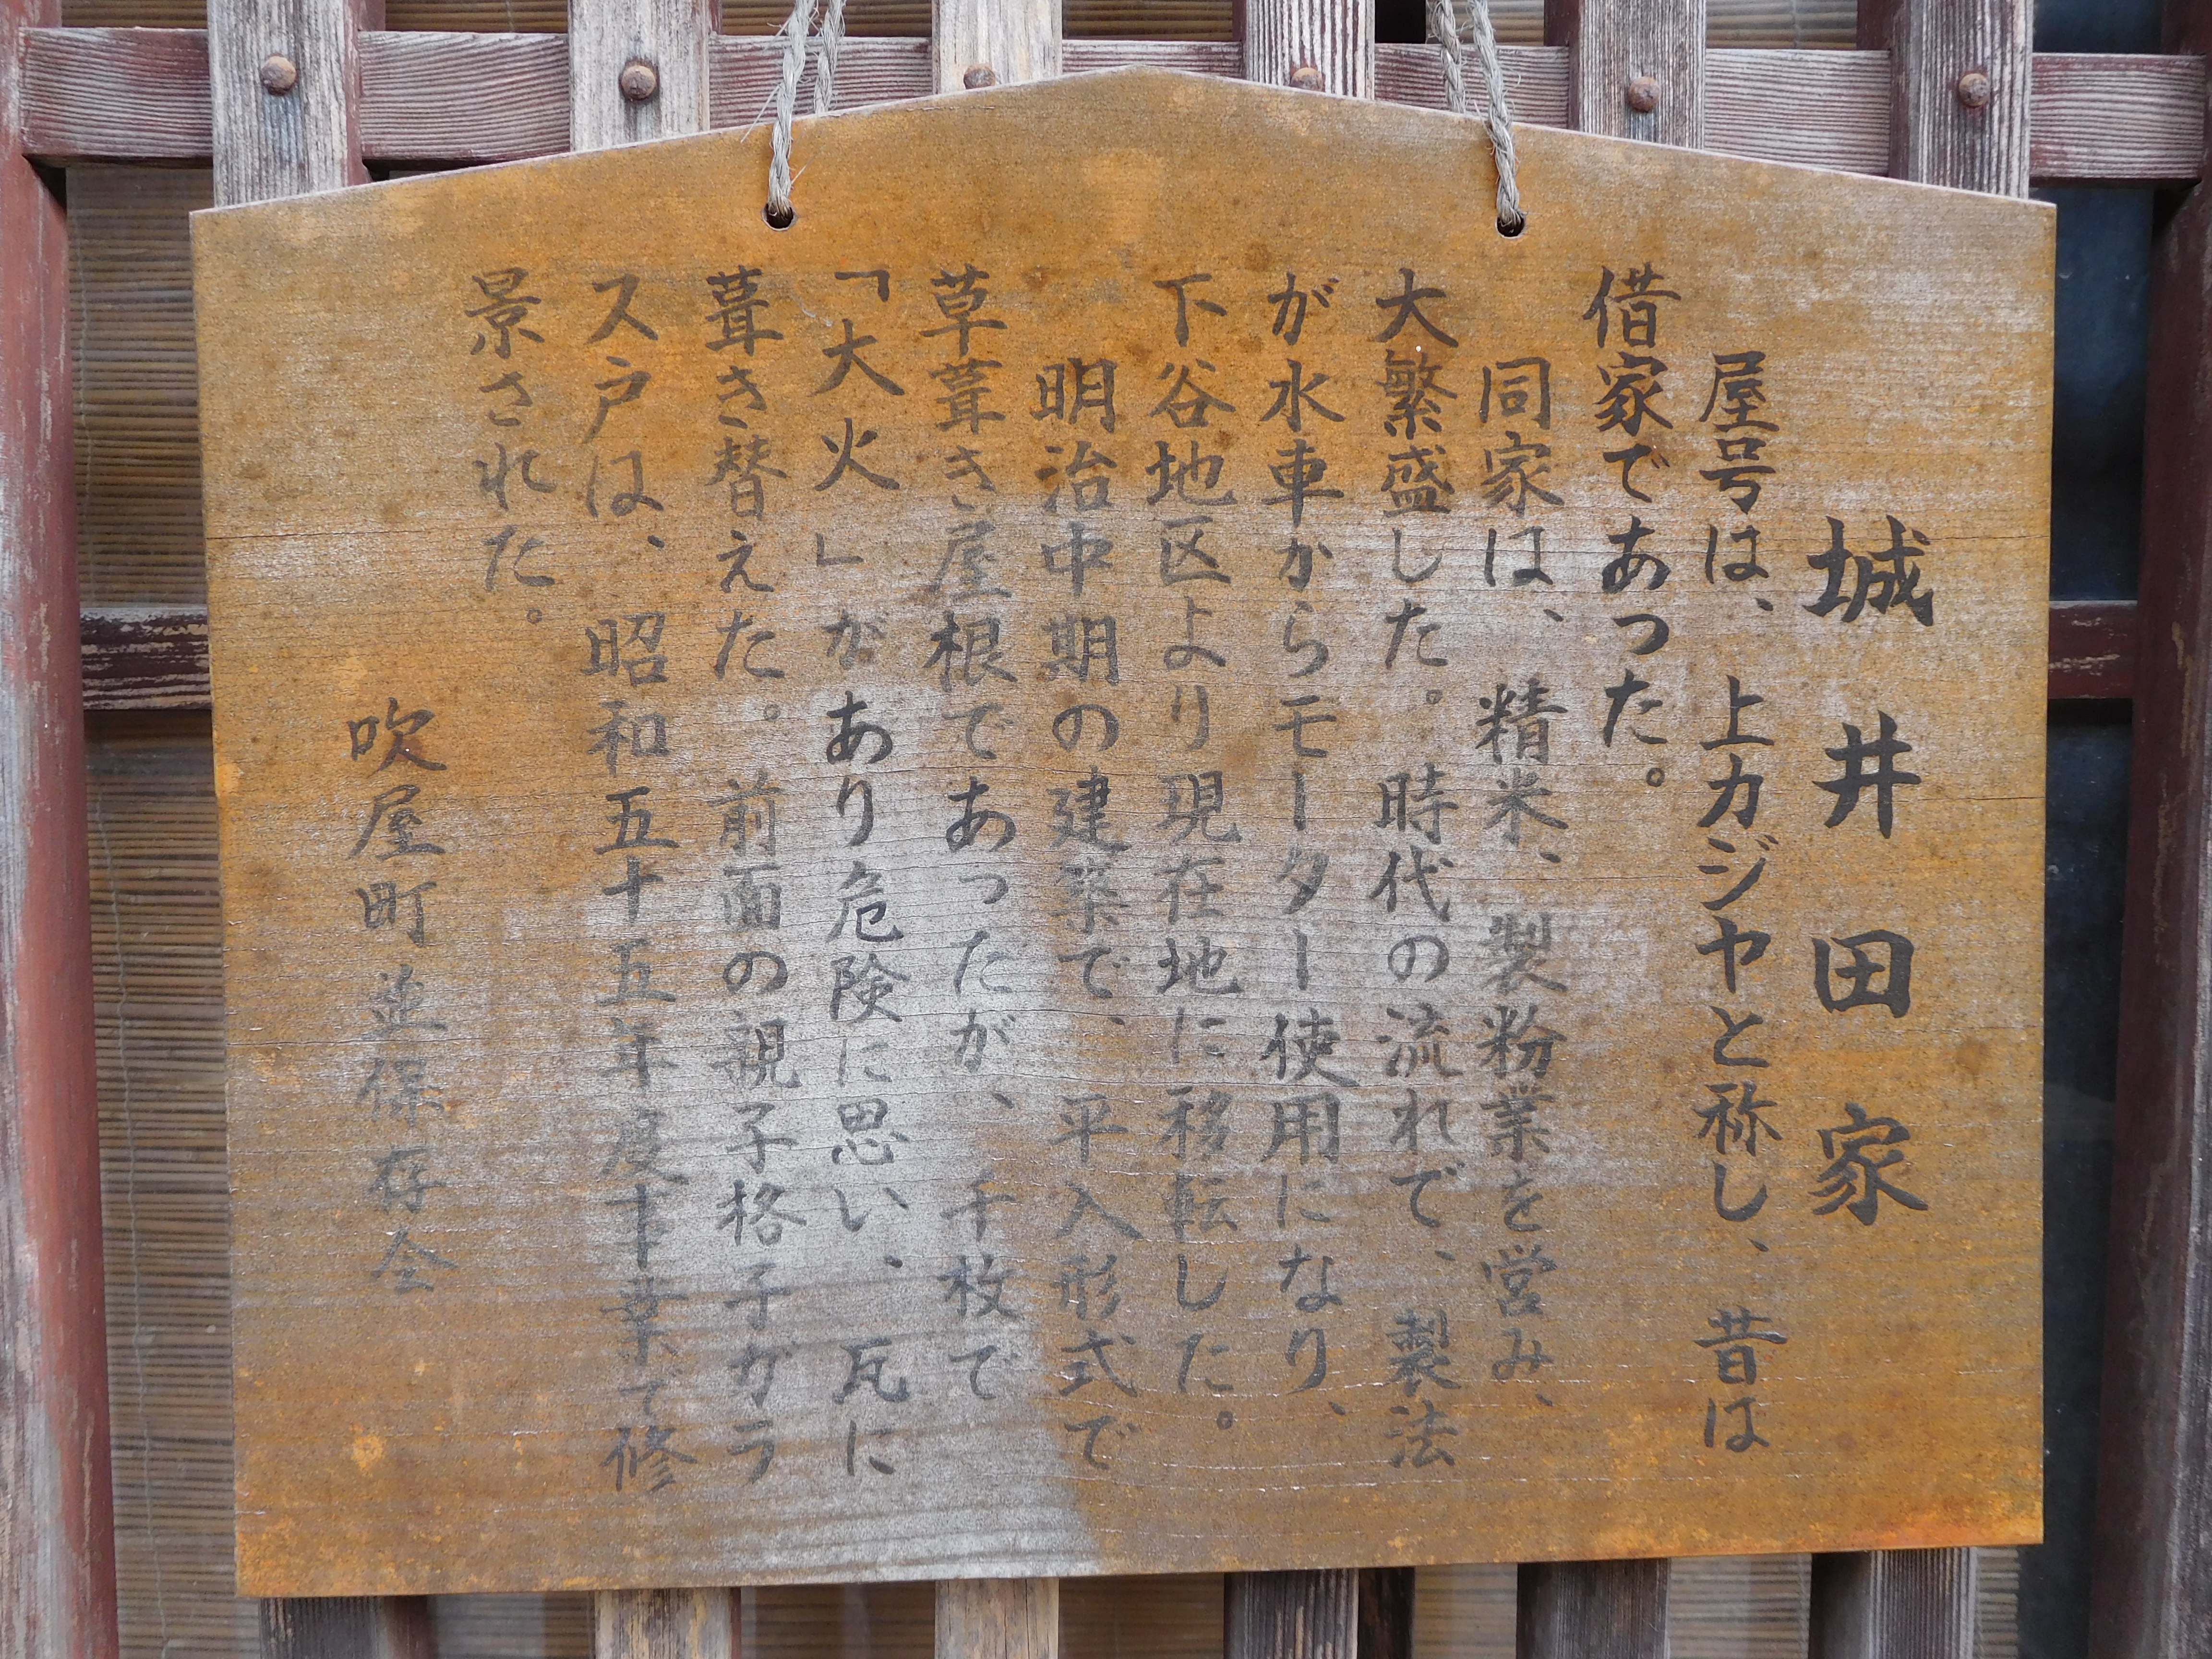 城井田家
屋号は、上カジヤと称し、昔は
借家であった。
同家は、精米、製粉業を営み、
大繁盛した。時代の流れで、製法
が水車からモーター使用になり、
下谷地区より現在地に移転した。
明治中期の建築で、平入形式で
草葺き屋根であったが、千枚で
「大火」があり危険に思い、瓦に
葺き替えた。前面の親子格子ガラ
ス戸は、昭和五十五年度事業で修
景された。
吹屋町並保存会